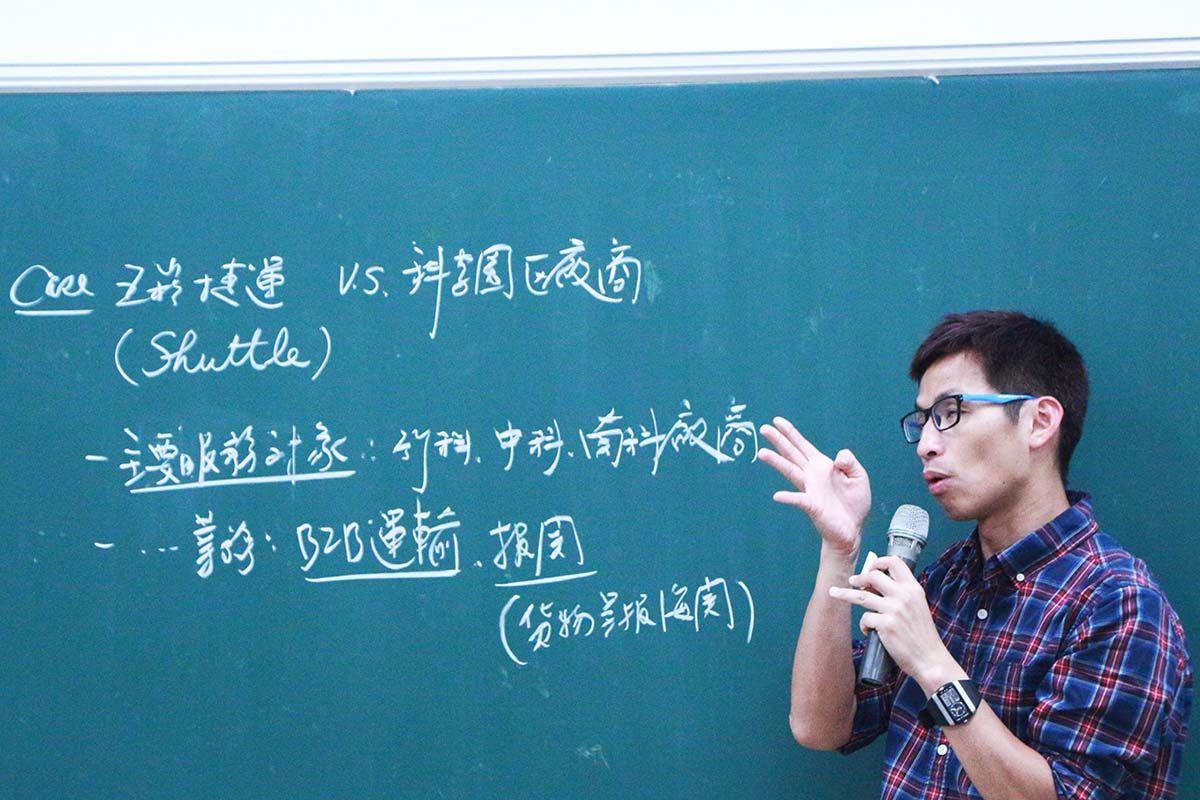 Case 捷運 V.S. 科学園区廠商
(Shuttle)
- 主要服務对象：竹科、中科、南科廠商
- … 業務：B2B運輸、报関
(貨物呈报海関)